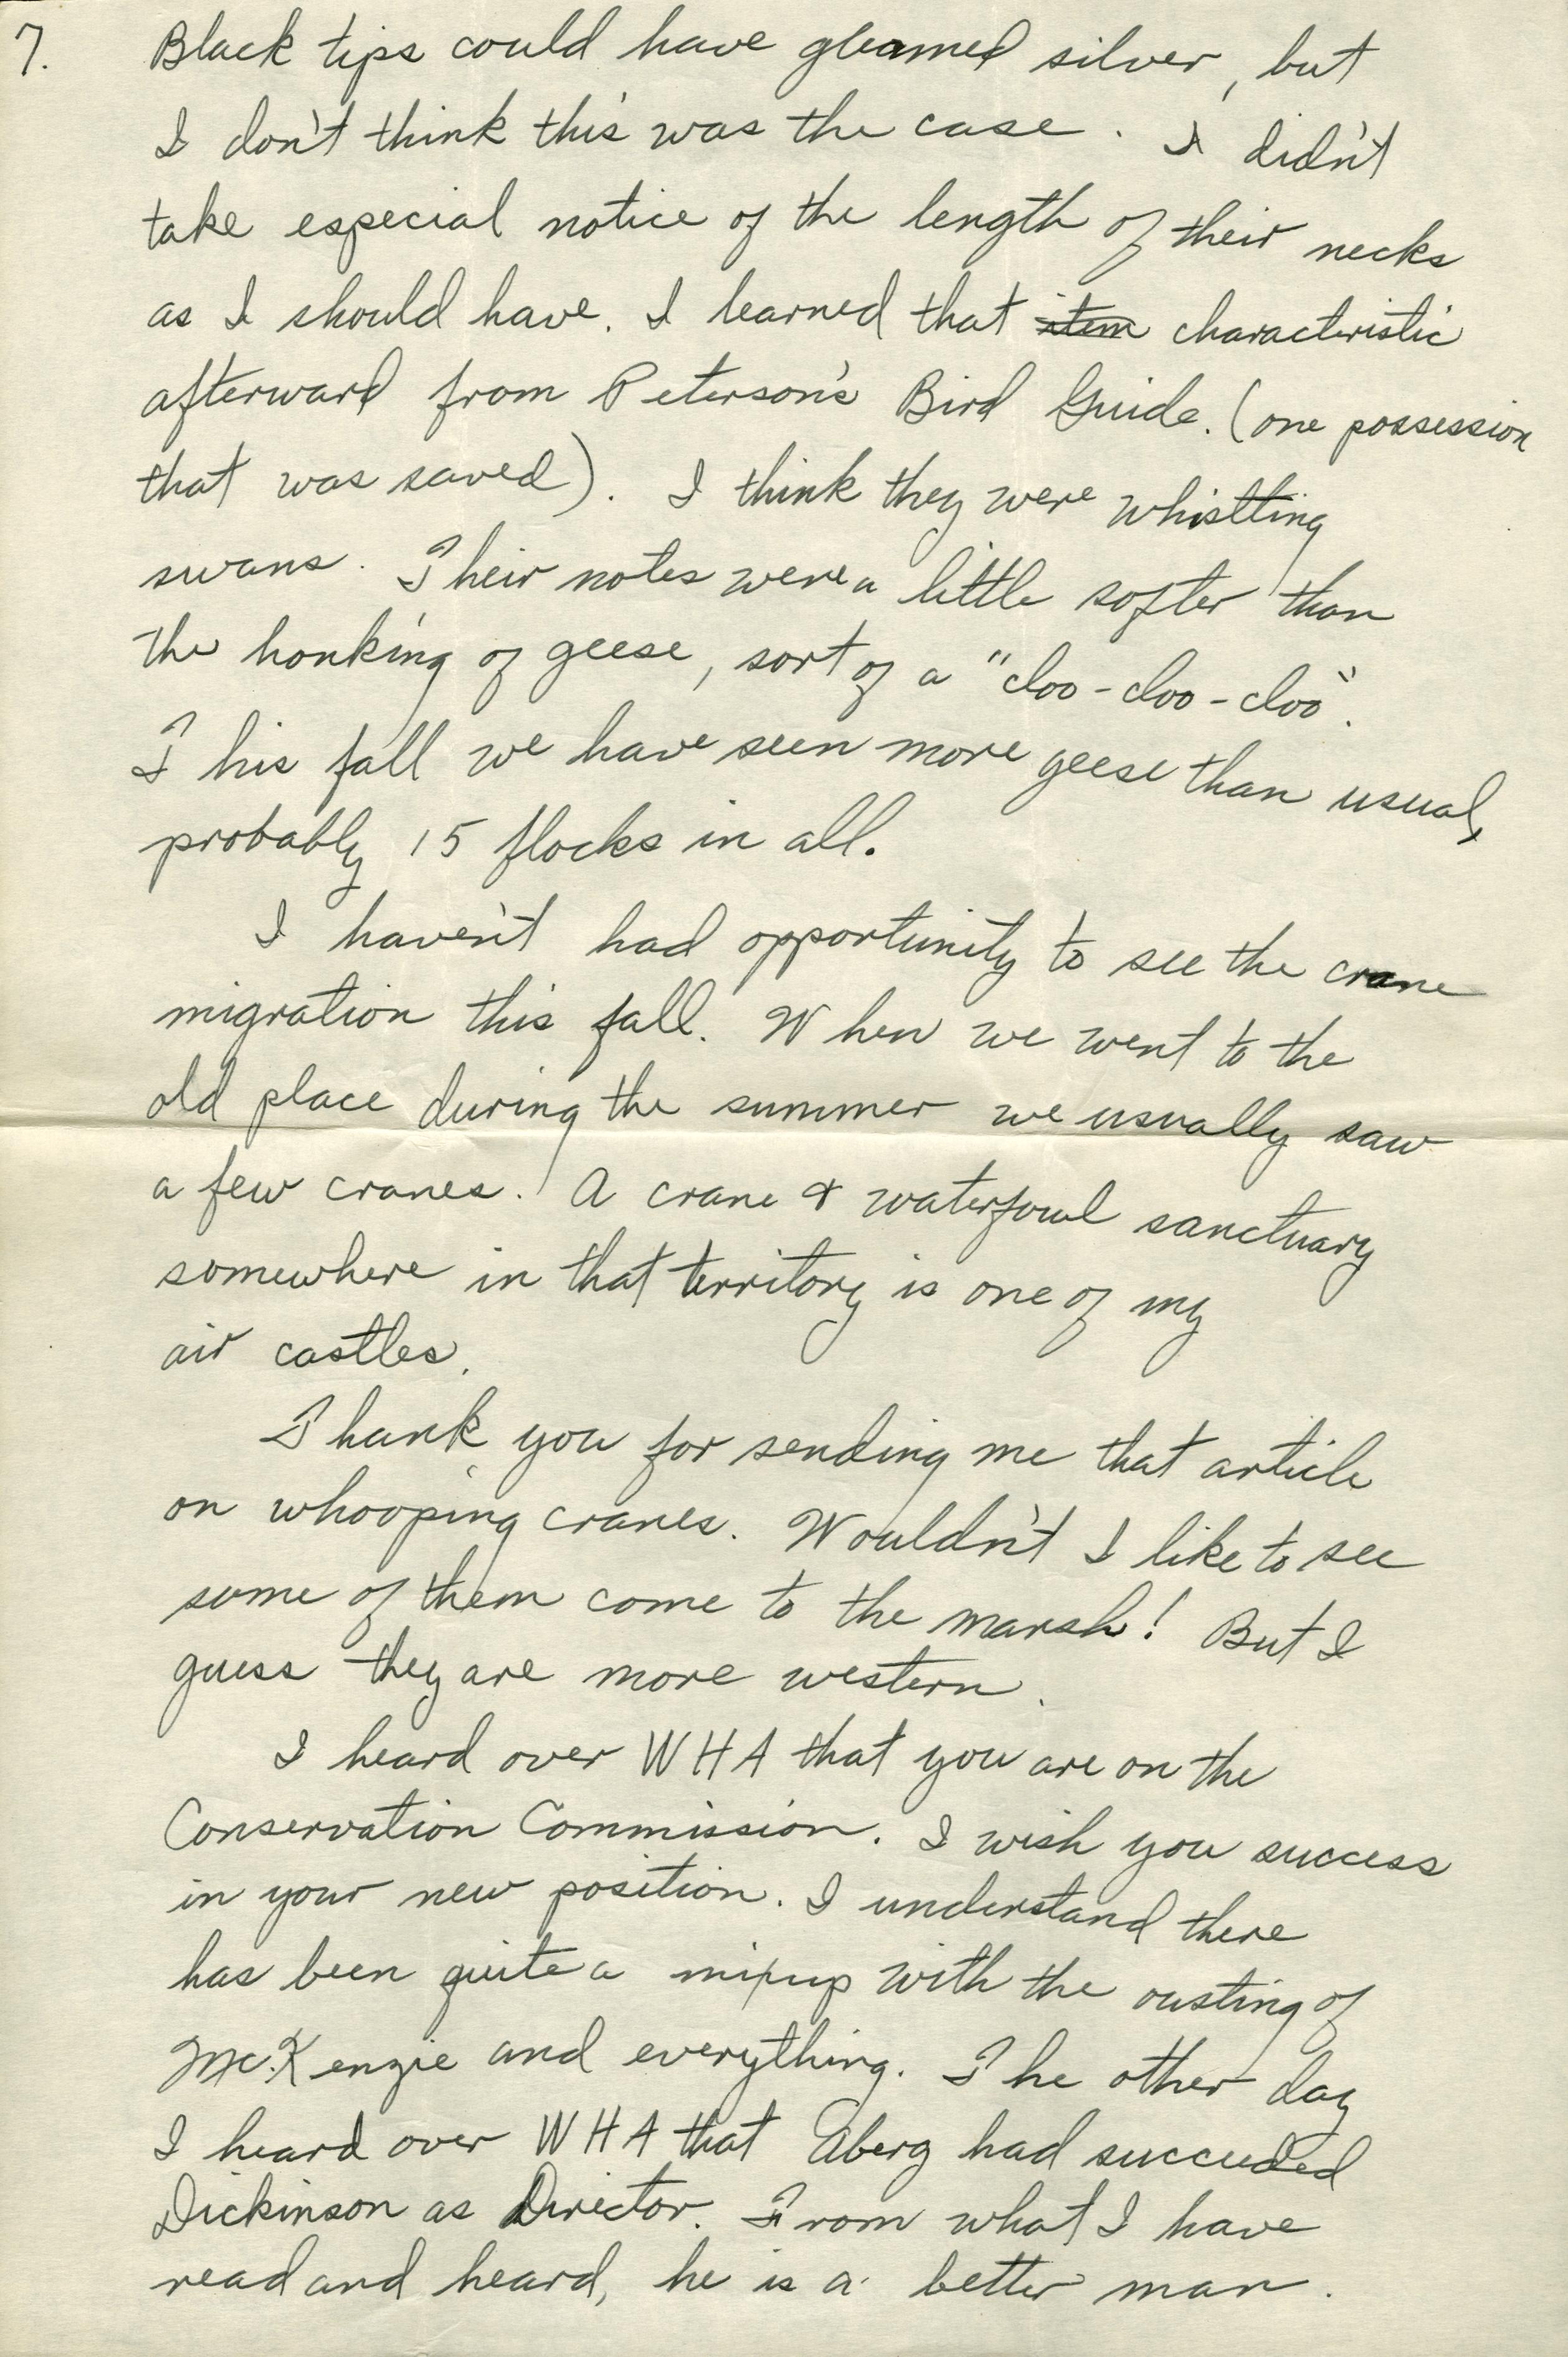 7.
Black tips could have gleamed silver, but
I don't think this was the case. I didn't
take especial notice of the length of their necks
as I should have. I learned that item characteristic
afterward from Peterson's Bird Guide. (one possession
that was saved). I think they were whistling
swans. Their notes were a little softer than
the honking of geese, sort of a "cloo-cloo-cloo".
This fall we have seen more geese than usual,
probably 15 flocks in all.
I haven't had opportunity to see the crane
migration this fall. When we went to the
old place during the summer we usually saw
a few cranes. A crane & waterfowl sanctuary
somewhere in that territory is one of my
air castles.
Thank you for sending me that article
on whooping cranes. Wouldn't I like to see
some of them come to the marsh! But I
guess they are more western.
I heard over WHA that you are on the
Conservation Commission. I wish you success
in your new position. I understand there
has been quite a mixup with the ousting of
McKenzie and everything. The other day
I heard over WHA that Aberg had succeeded
Dickinson as Director. From what I have
read and heard, he is a better man.